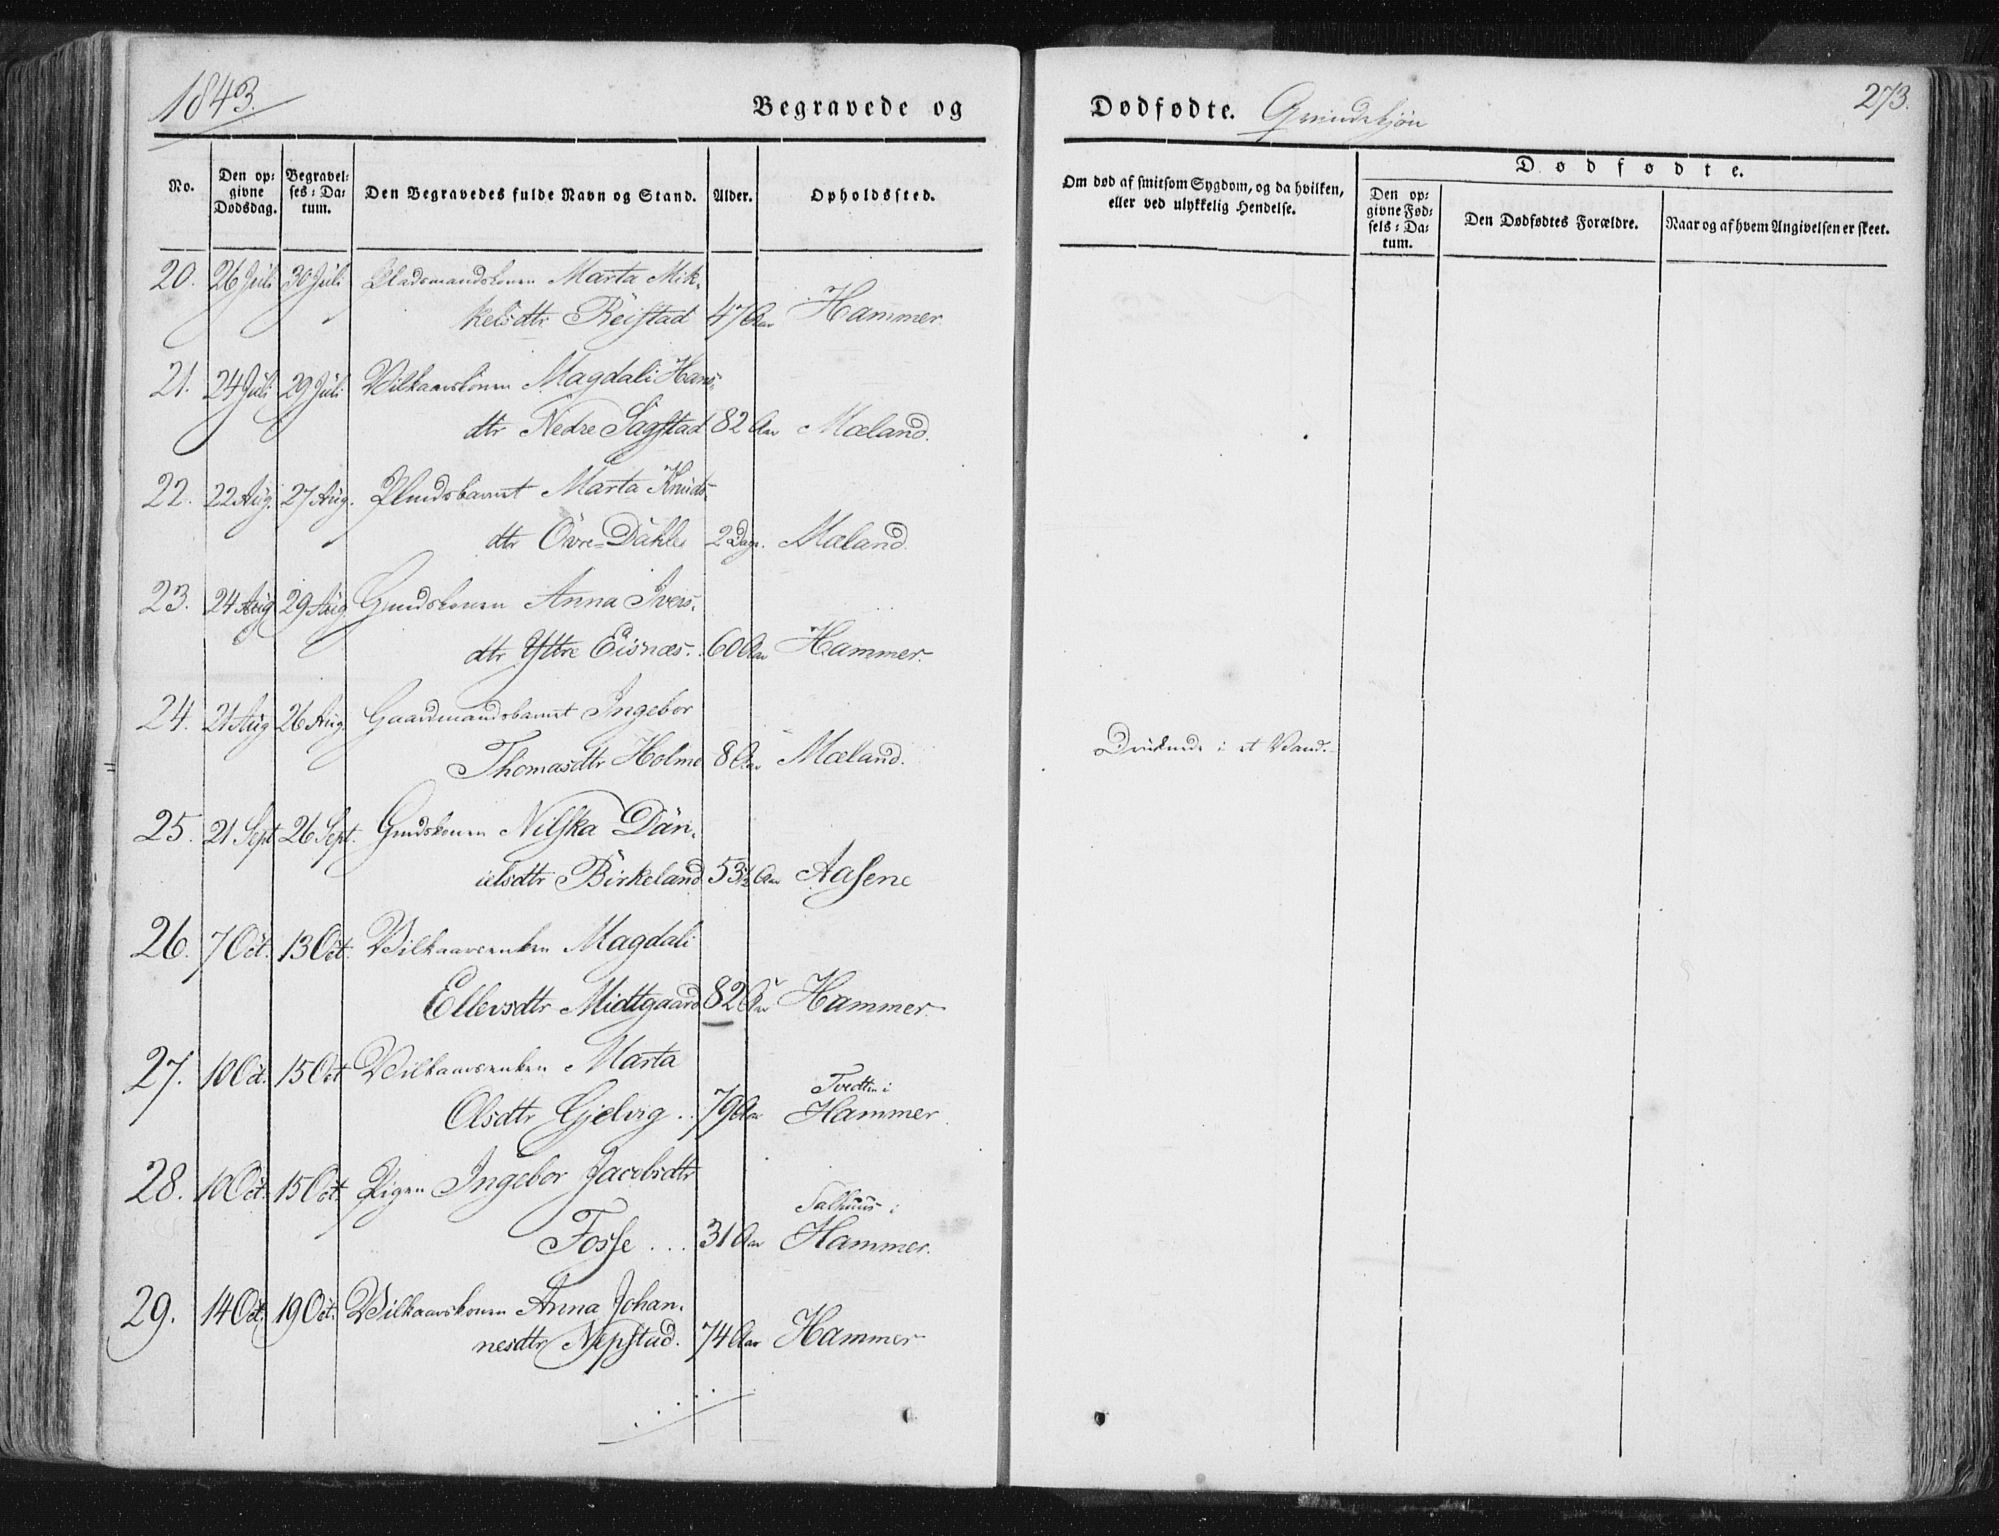 1843.
Begravede og
Dødfødte. Qvindekjøn
273.
No.
Den op=
givne
Dødsdag.
Begravel=
ses=Da=
tum.
Den Begravedes fulde Navn og Stand.
Alder.
Opholdssted.
Om død af smitsom Sygdom, og da hvilken,
eller ved ulykkelig Hendelse.
Dødfødte.
Den op=
givne Fød=
sels=Da=
tum.
Den Dødfødtes Forældre.
Naar og af hvem Angivelsen er skeet.
20. 26 Juli 30 Juli Pladsmandskonen Marta Mik-
kelsdtr Reistad 47 Aar Hammer.
21. 24 Juli 29 Juli Vilkaarskonen Magdali Hans-
dtr Nedre Sagstad 82 Aar Mæland.
22. 22 Aug. 27 Aug. Marta Knuds-
dtr Övre=Dahle 2 Dage. Mæland.
23. 24 Aug 29 Aug Anna Ivers-
dtr Yttre Eisnæs. 60 Aar Hammer.
24. 21 Aug 26 Aug. Gaardmandsbarnet Ingebor
Thomasdtr Holme 8 Aar Mæland. Druknede i et Vand.
25. 21 Sept 26 Sept. Nilska Dan-
ielsdtr Birkeland 53½ Aar Aasene
26. 7 Oct. 13 Oct. Vilkaarsenken Magdali
Ellevsdtr Midtgaard 82 Aar Hammer.
27. 10 Oct. 15 Oct Vilkaarsenken Marta
Olsdtr Gjelvig .. 79 Aar Tvedten i
Hammer.
28. 10 Oct. 15 Oct. Pigen Ingebor Jacobsdtr
Fosse ... 31 Aar Salhuus i
Hammer.
29. 14 Oct. 19 Oct. Vilkaarskonen Anna Johan-
nesdtr Nepstad. 74 Aar Hammer